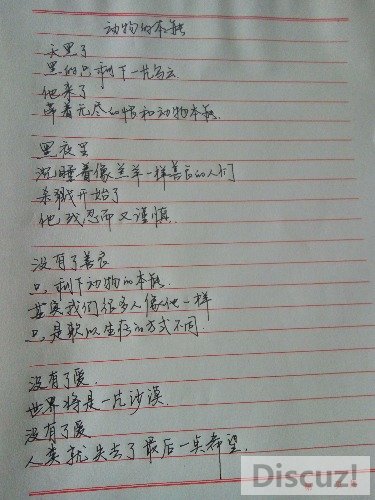 动物的本能
天黑了
黑的只剩下一片乌云
他来了
带着无尽的恨和动物本能.
黑夜里
沉睡着像羔羊一样善良的人们
杀戮开始了
他残忍而又谨慎.
没有了善良
只剩下动物的本能.
其实我们很多人像他一样
只是赖以生存的方式不同.
没有了爱.
世界将是一片沙漠.
没有了爱
人类就失去了最后一点希望.
Discuz!